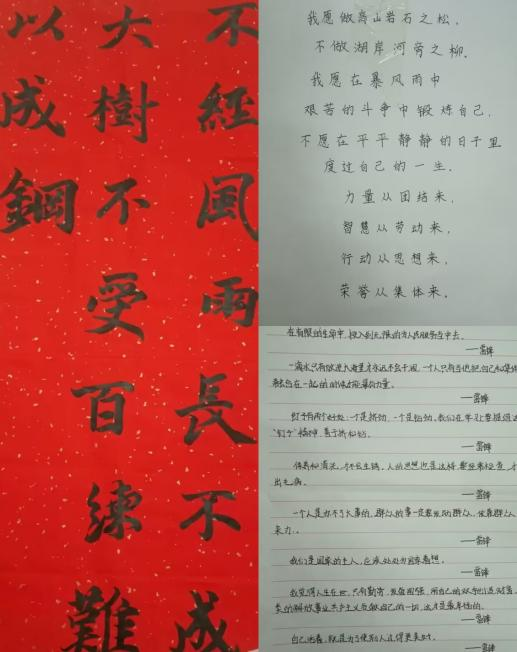 不經風雨長不成
大樹不受百練難
以成鋼
我愿做高山岩石之松,
不做湖岸河旁之柳。
我愿在暴风雨中
艰苦的斗争中锻炼自己,
不愿在平平静静的日子里
度过自己的一生.
力量从团结来,
智慧从劳动来,
行动从思想来,
荣誉从集体来。
在有限的生命中,投入到无限的为人民服务当中去。
——雷锋
一滴水只有放进大海里才永远不会干涸,一个人只有当他把自己和集体
在一起的时候才能最有力量。
——雷锋
钉子有两个好处:一个是挤劲,一个是钻劲,我们在学习上要提倡这
"钉子"精神,善于挤和钻。
——雷锋
不会生锈,人的思想也是这样要经常检查,才
出毛病。
——雷锋
一个人是办不了大事的,群众的事一定要发动群众,依靠群众
来力。
——雷锋
我们是国家的主人,应该处处为国家着想。
——雷锋
我觉得人生在世,只有勤劳,发奋图强,用自己的双手创造财富
类的解放事业共产主义贡献自己的一切,这才是最幸福的。
——雷锋
自己活着,就是为了使别人过得更美好。
——雷锋